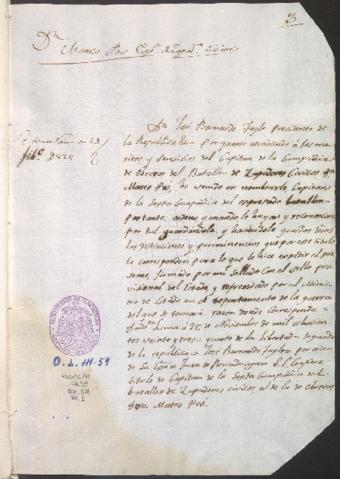 3
Dn
Marco Paz Capn
Dn José Bernardo Tagle Presidente de
la Republica &a. Por quanto atendiendo á los me-
ritos y servicios del Capitan de la Compañia
de Obreros del Batallon de Zapadores Civicos Dn
he venido en nombrarle Capitan
de la Sexta Compañia del expresado batallon
Por tanto, ordeno y mando lo hayan y reconozcan
por tal guardandole, y haciendole guardar todas
las distinciones y preeminencias que por este titulo
le corresponden para lo que le hice expedir el pre-
sente, firmado por mi, sellado con el sello pro-
visional del Estado y refrendado por el Minis-
tro de Estado en el departamento de la guerra
del que se tomará razon donde corresponda
Dado en Lima á de Noviembre de mil ochocien-
tos veinte y tres quarto de la libertad y segundo
de la republica José Bernardo Tagle por orden
de S.E. Juan de Berindoaga S.E. Confiere
titulo de Capitan de la Sexta Compañia del
batallon de Zapadores civicos, al de la de Obreros
Dn
O.L. 111-54